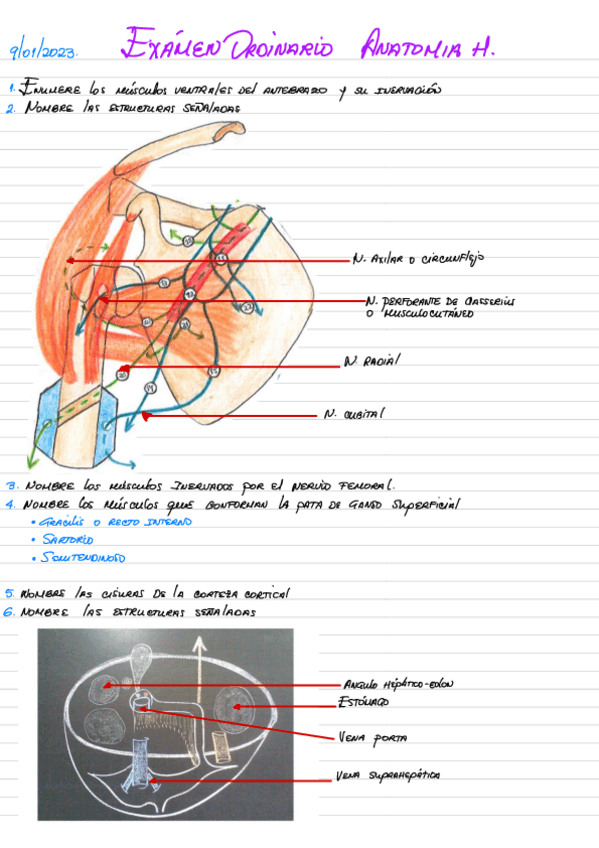 9/01/2023. EXÁMEN ORDINARIO ANATOMIA H.
1. ENUMERE los músculos ventrales del antebrazo y su inervación
2. NOMBRE las estructuras señaladas
N. Axilar o circunflejo
N. perforante de Casserius
o musculocutáneo
N. Radial
N. cubital
3. NOMBRE los músculos Inervados por el nervio femoral.
4. NOMBRE los músculos que conforman la pata de ganso superficial
• Gracilis o recto interno
• Sartorio
• Semitendinoso
5. NOMBRE las cisuras de la corteza cortical
6. NOMBRE las estructuras señaladas
Angulo hépatico-colon
Estómago
Vena porta
Vena suprahepática